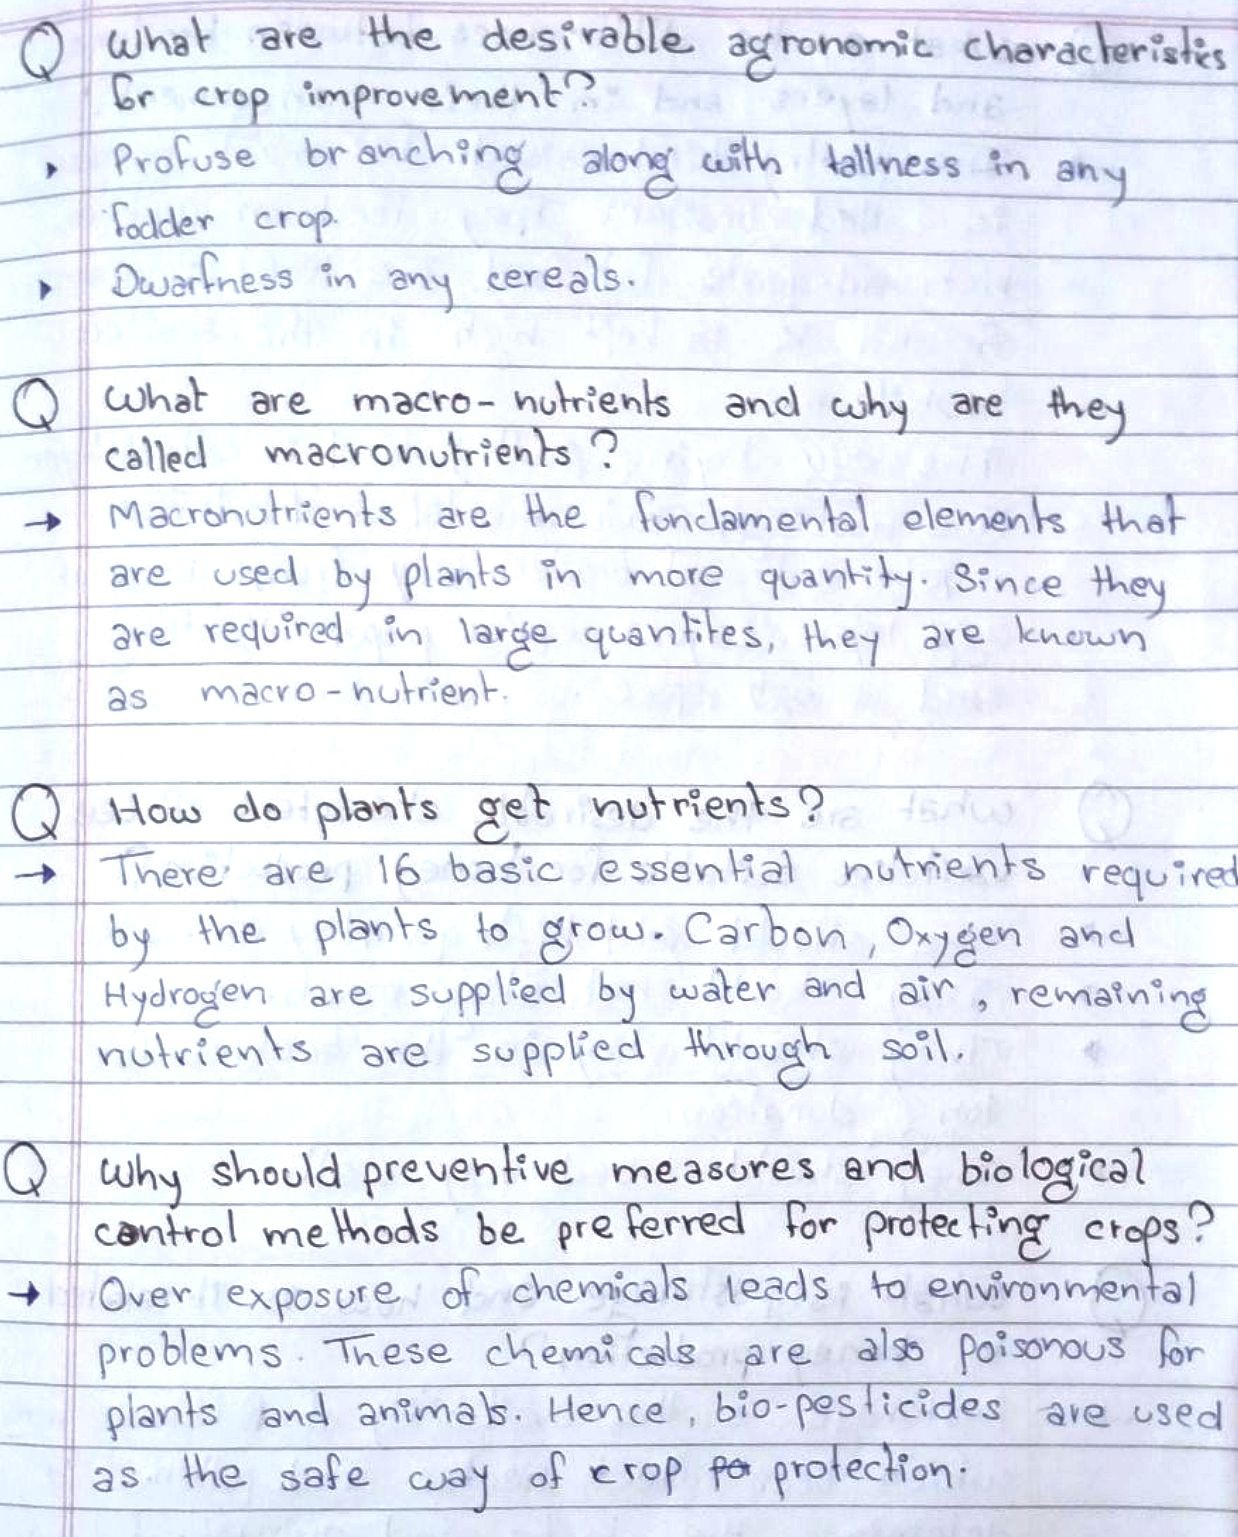 Q What are the desirable agronomic characteristics
for crop improvement?
▸ Profuse branching along with tallness in any
fodder crop.
▸ Dwarfness in any cereals.
Q What are macro-nutrients and why are they
called macronutrients?
→ Macronutrients are the fundamental elements that
are used by plants in more quantity. Since they
are required in large quantites, they are known
as macro-nutrient.
Q How do plants get nutrients?
→ There are 16 basic essential nutrients required
by the plants to grow. Carbon, Oxygen and
Hydrogen are supplied by water and air, remaining
nutrients are supplied through soil.
Q Why should preventive measures and biological
control methods be preferred for protecting crops?
→ Over exposure of chemicals leads to environmental
problems. These chemicals are also poisonous for
plants and animals. Hence, bio-pesticides are used
as the safe way of crop protection.